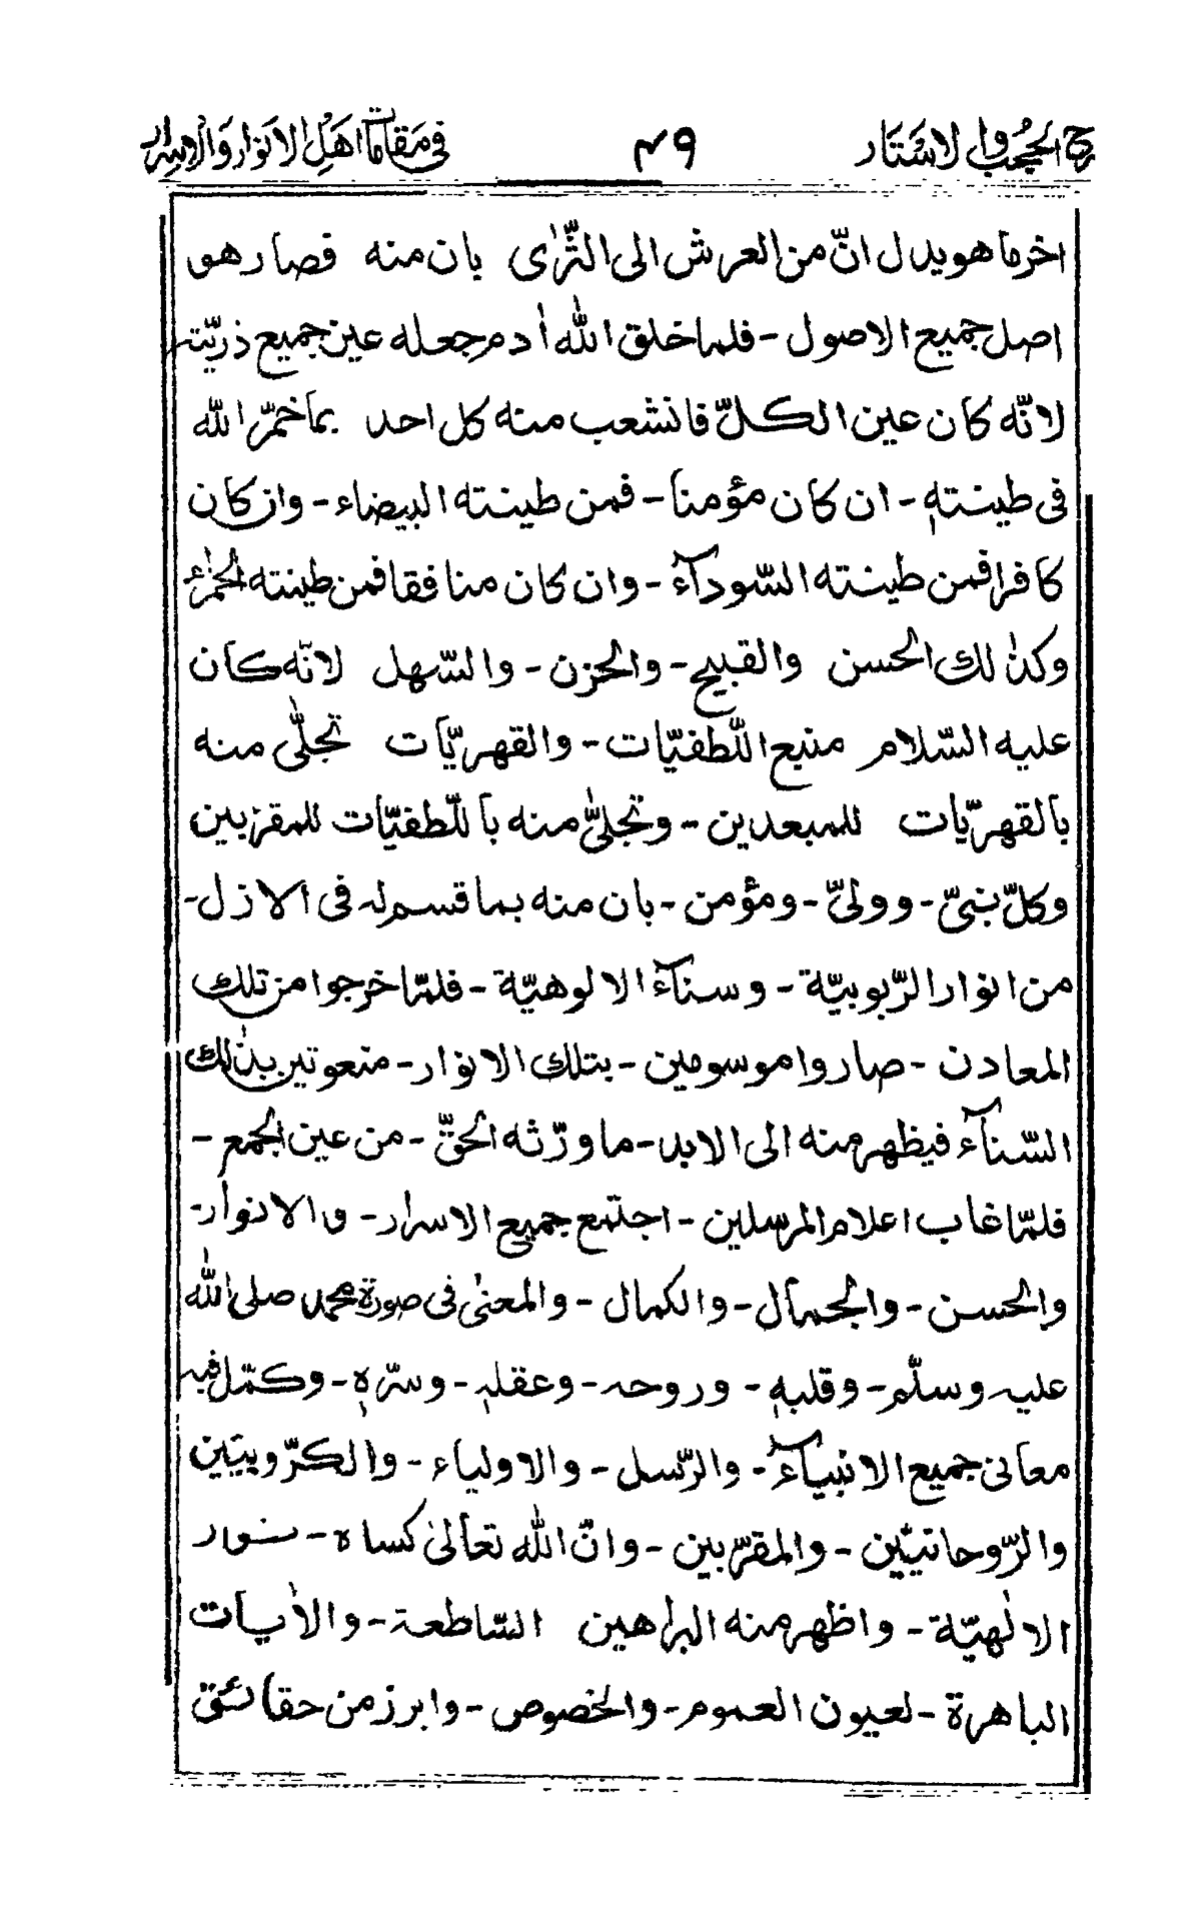 شرح الحجب والاستار ٤٩ فى مقامات اهل الانوار والاسرار
اخر ما هو يدل انّ من العرش الى الثّرٰى بان منه فصار هو
اصل جميع الاصول - فلما خلق اللّٰه اٰدم جعله عين جميع ذريّته
لانّه كان عين الكلّ فانشعب منه كل احد بما خمّر اللّٰه
فى طينتهٖ - ان كان مؤمنا - فمن طينته البيضاء - وان كان
كافرا فمن طينته السّودآء - وان كان منافقا فمن طينته الحمرٰاء
وكذٰلك الحسن والقبيح - والحزن - والسّهل لانّه كان
عليه السّلام منبع اللّطفيّات - والقهريّات تجلّٰى منه
بالقهريّات للمبعدين - وتجلّٰى منه باللّطفيّات للمقربين
وكلّ نبىّ - وولىّ - ومؤمن - بان منه بما قسم له فى الازل -
من انوار الرّبوبيّة - وسنآء الالوهيّة - فلمّا خرجوا من تلك
المعادن - صاروا موسومين - بتلك الانوار - منعوتين بذٰلك
السّنآء فيظهر منه الى الابد - ما ورّثه الحقّ - من عين الجمع -
فلمّا غاب اعلام المرسلين - اجتمع جميع الاسرار - والانوار -
والحسن - والجمال - والكمال - والمعنٰى فى صورة محمد صلى اللّٰه
عليه وسلّم - وقلبهٖ - وروحه - وعقلهٖ - وسرّهٖ - وكمّل فيه
معانى جميع الانبيآء - والرّسل - والاولياء - والكرّوبيّين
والرّوحانيّين - والمقرّبين - وانّ اللّٰه تعالىٰ كساه - بنور
الالٰهيّة - واظهر منه البراهين السّاطعة - والاٰيات
الباهرة - لعيون العموم - والخصوص - وابرز من حقائق